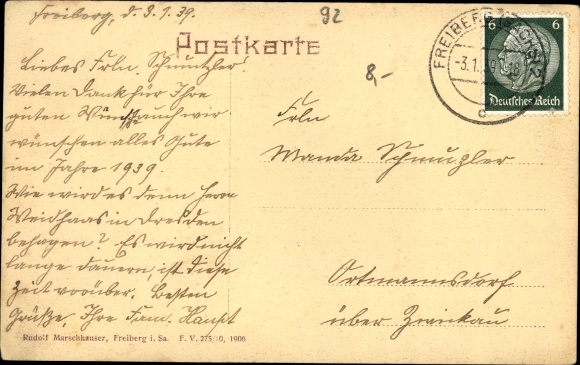 Freiberg, d. 3.1.39.
92
Postkarte
8,-
FREIBERG (SACHS) 2
-3.1.39
6 6
Deutsches Reich
Liebes Frln. Schmutzler!
Vielen Dank für Ihre
guten Wünsche auch wir
wünschen alles Gute
im Jahre 1939.
Wie wird es denn Herrn
Weidhaas in Dresden
behagen? Es wird nicht
lange dauern, ist diese
Zeit vorüber. Besten
Grüße, Ihre Fam. Haupt
Frln
Wanda Schmuzler
Ortmannsdorf
über Zwickau
Rudolf Marschhauser, Freiberg i. Sa. F. V. 275/10, 1906